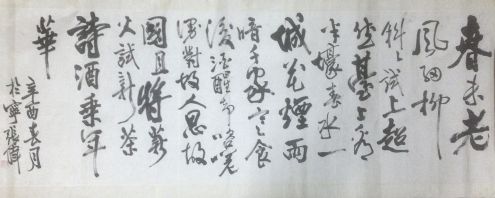 春未老
風細柳
斜々試上超
然臺上看
半壕春水一
城花煙雨
暗千家寒食
後酒醒却咨嗟
休對故人思故
國且將新
火試新茶
詩酒趁年
華
辛酉春月
於寧張